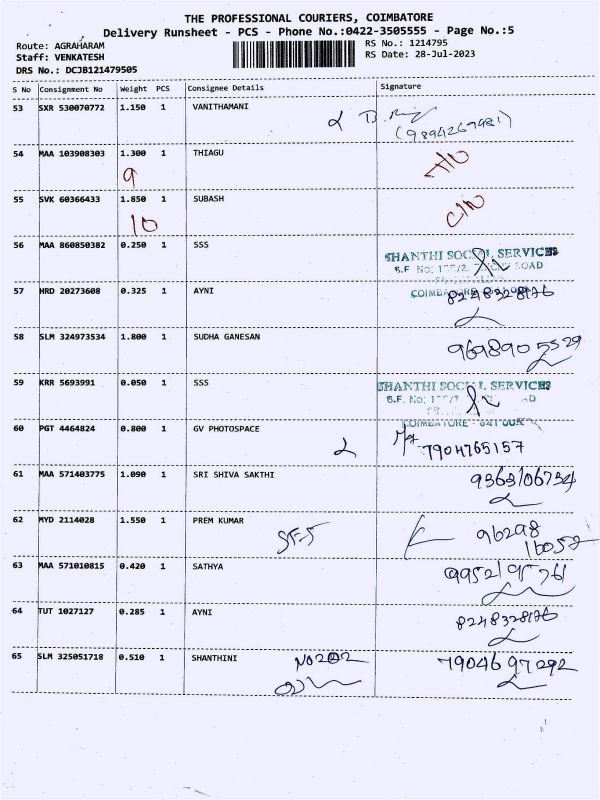 THE PROFESSIONAL COURIERS, COIMBATORE
Delivery Runsheet - PCS - Phone No.:0422-3505555 - Page No.:5
Route: AGRAHARAM
Staff: VENKATESH
DRS No.: DCJB121479505
RS No.: 1214795
RS Date: 28-Jul-2023
S No Consignment No Weight PCS Consignee Details Signature
53 SXR 530070772 1.150 1 VANITHAMANI
54 MAA 103908303 1.300 1 THIAGU
9
55 SVK 60366433 1.850 1 SUBASH
10
56 MAA 860850382 0.250 1 SSS
SHANTHI SOCIAL SERVICES
57 HRD 20273608 0.325 1 AYNI 8248328176
58 SLM 324973534 1.800 1 SUDHA GANESAN 9698905529
59 KRR 5693991 0.050 1 SSS
SHANTHI SOCIAL SERVICES
60 PGT 4464824 0.800 1 GV PHOTOSPACE 7904765157
61 MAA 571403775 1.090 1 SRI SHIVA SAKTHI 9363106734
62 MYD 2114028 1.550 1 PREM KUMAR SF-5 96298
16052
63 MAA 571010815 0.420 1 SATHYA 9952195761
64 TUT 1027127 0.285 1 AYNI 8248328176
65 SLM 325051718 0.510 1 SHANTHINI NO202 7904697292